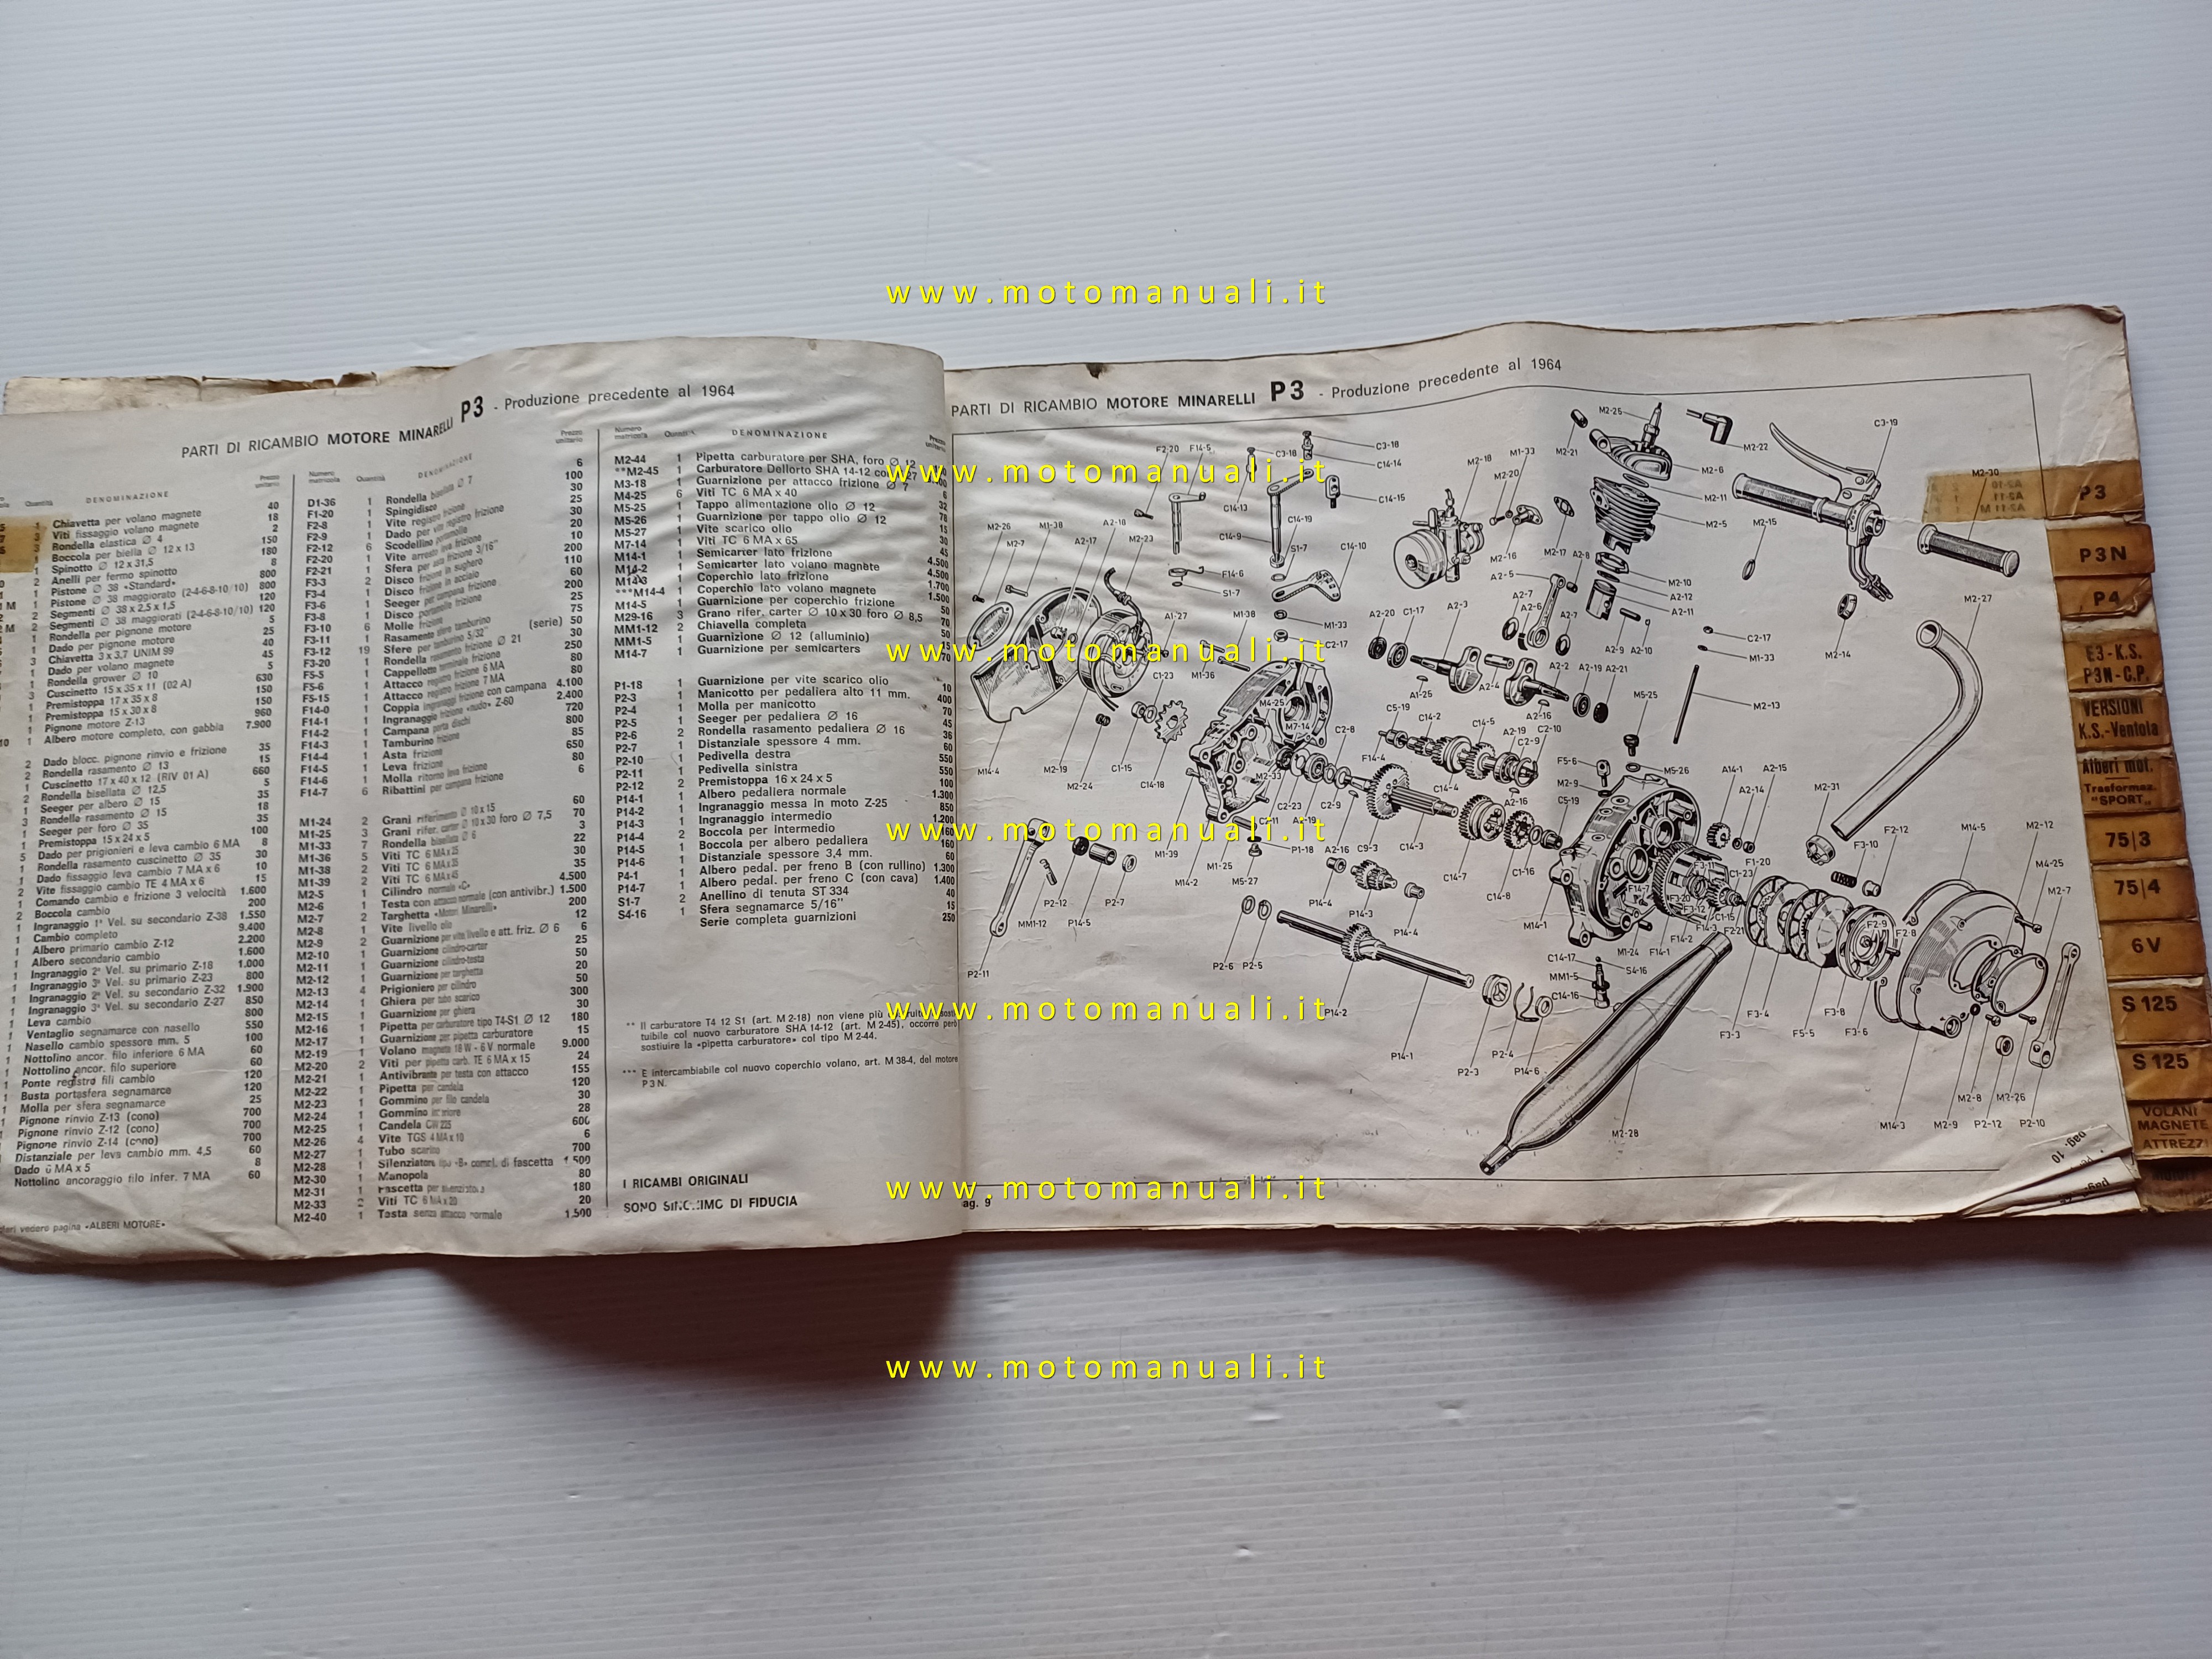 www.motomanuali.it
PARTI DI RICAMBIO MOTORE MINARELLI P3 - Produzione precedente al 1964
Quantità DENOMINAZIONE Prezzo unitario
1 Chiavetta per volano magnete 40
3 Viti fissaggio volano magnete 18
3 Rondella elastica Ø 4 2
1 Boccola per biella Ø 12 x 13 150
1 Spinotto Ø 12 x 31,5 180
2 Anelli per fermo spinotto 8
1 Pistone Ø 38 «Standard» 800
1 Pistone Ø 38 maggiorato (2-4-6-8-10/10) 800
2 Segmenti Ø 38 x 2,5 x 1,5 120
2 Segmenti Ø 38 maggiorati (2-4-6-8-10/10) 120
1 Rondella per pignone motore 5
1 Dado per pignone motore 25
3 Chiavetta 3 x 3,7 UNIM 99 40
1 Dado per volano magnete 45
1 Rondella grower Ø 10 5
3 Cuscinetto 15 x 35 x 11 (02 A) 630
1 Premistoppa 17 x 35 x 8 150
1 Premistoppa 15 x 30 x 8 150
1 Pignone motore Z-13 960
1 Albero motore completo, con gabbia 7.900
2 Dado blocc. pignone rinvio e frizione 35
2 Rondella rasamento Ø 13 15
1 Cuscinetto 17 x 40 x 12 (RIV 01 A) 660
2 Rondella bisellata Ø 12,5 5
1 Seeger per albero Ø 15 35
3 Rondella rasamento Ø 15 18
1 Seeger per foro Ø 35 35
1 Premistoppa 15 x 24 x 5 100
5 Dado per prigionieri e leva cambio 6 MA 8
1 Rondella rasamento cuscinetto Ø 35 30
1 Dado fissaggio leva cambio 7 MA x 6 10
2 Vite fissaggio cambio TE 4 MA x 6 15
1 Comando cambio e frizione 3 velocità 1.600
2 Boccola cambio 200
1 Ingranaggio 1ª Vel. su secondario Z-38 1.550
1 Cambio completo 9.400
1 Albero primario cambio Z-12 2.200
1 Albero secondario cambio 1.600
1 Ingranaggio 2ª Vel. su primario Z-18 1.000
1 Ingranaggio 3ª Vel. su primario Z-23 800
1 Ingranaggio 2ª Vel. su secondario Z-32 1.900
1 Ingranaggio 3ª Vel. su secondario Z-27 850
1 Leva cambio 800
1 Ventaglio segnamarce con nasello 550
1 Nasello cambio spessore mm. 5 100
1 Nottolino ancor. filo inferiore 6 MA 60
1 Nottolino ancor. filo superiore 60
1 Ponte registro fili cambio 120
1 Busta portasfera segnamarce 120
1 Molla per sfera segnamarce 25
1 Pignone rinvio Z-13 (cono) 700
1 Pignone rinvio Z-12 (cono) 700
1 Pignone rinvio Z-14 (cono) 700
1 Distanziale per leva cambio mm. 4,5 60
Dado 6 MA x 5 8
Nottolino ancoraggio filo infer. 7 MA 60
vedere pagina «ALBERI MOTORE»
Numero matricola Quantità DENOMINAZIONE Prezzo unitario
D1-36 1 Rondella bisellata Ø 7 6
F1-20 1 Spingidisco 100
F2-8 1 Vite registro frizione 30
F2-9 1 Dado per vite registro frizione 25
F2-12 6 Scodellino portamolle 20
F2-20 1 Vite arresto leva frizione 10
F2-21 1 Sfera per asta frizione 3/16" 10
F3-3 2 Disco frizione in sughero 200
F3-4 1 Disco frizione in acciaio 110
F3-6 1 Seeger per campana frizione 60
F3-8 1 Disco portamolle frizione 200
F3-10 6 Molle frizione (serie) 50
F3-11 1 Rasamento sfere tamburino
F3-12 19 Sfere per tamburino 5/32"
F3-20 1 Rondella rasamento frizione Ø 21
F5-5 1 Cappellotto terminale frizione
F5-6 1 Attacco registro frizione 6 MA 80
F5-15 1 Attacco registro frizione 7 MA 80
F14-0 1 Coppia ingranaggi frizione con campana 4.100
F14-1 1 Ingranaggio frizione «nudo» Z-60 2.400
F14-2 1 Campana porta dischi 720
F14-3 1 Tamburino frizione 800
F14-4 1 Asta frizione 85
F14-5 1 Leva frizione 650
F14-6 1 Molla ritorno leva frizione 80
F14-7 6 Ribattini per campana frizione 6
M1-24 2 Grani riferimento Ø 10 x 15 60
M1-25 3 Grani rifer. carter Ø 10 x 30 foro Ø 7,5 70
M1-33 7 Rondella bisellata Ø 6 3
M1-36 5 Viti TC 6 MA x 25 22
M1-38 2 Viti TC 6 MA x 35 30
M1-39 2 Viti TC 6 MA x 45 35
M2-5 1 Cilindro normale «C» 4.500
M2-6 1 Testa con attacco normale (con antivibr.) 1.500
M2-7 2 Targhetta «Motori Minarelli» 200
M2-8 1 Vite livello olio 12
M2-9 2 Guarnizione per vite livello e att. friz. Ø 6 6
M2-10 1 Guarnizione cilindro-carter 25
M2-11 1 Guarnizione cilindro-testa 50
M2-12 1 Guarnizione per targhetta 20
M2-13 4 Prigioniero per cilindro 50
M2-14 1 Ghiera per tubo scarico 300
M2-15 1 Guarnizione per ghiera 30
M2-16 1 Pipetta per carburatore tipo T4-S1 Ø 12 180
M2-17 1 Guarnizione per pipetta carburatore 15
M2-19 1 Volano magnete 18 W - 6 V normale 9.000
M2-20 2 Viti per pipetta carb. TE 6 MA x 15 24
M2-21 1 Antivibrante per testa con attacco 155
M2-22 1 Pipetta per candela 120
M2-23 1 Gommino per filo candela 30
M2-24 1 Gommino 28
M2-25 1 Candela CW 225 600
M2-26 4 Vite TGS 4 MA x 10 6
M2-27 1 Tubo scarico 700
M2-28 1 Silenziatore tipo «B» compl. di fascetta 1.500
M2-30 1 Manopola 80
M2-31 1 Fascetta per silenziatore 180
M2-33 2 Viti TC 6 MA x 20 20
M2-40 1 Testa senza attacco normale 1.500
Numero matricola Quantità DENOMINAZIONE Prezzo unitario
M2-44 1 Pipetta carburatore per SHA, foro Ø 12
**M2-45 1 Carburatore Dellorto SHA 14-12
M3-18 1 Guarnizione per attacco frizione Ø 7
M4-25 6 Viti TC 6 MA x 40
M5-25 1 Tappo alimentazione olio Ø 12
M5-26 1 Guarnizione per tappo olio Ø 12
M5-27 1 Vite scarico olio
M7-14 1 Viti TC 6 MA x 65
M14-1 1 Semicarter lato frizione
M14-2 1 Semicarter lato volano magnete
M14-3 1 Coperchio lato frizione
***M14-4 1 Coperchio lato volano magnete
M14-5 1 Guarnizione per coperchio frizione
M29-16 3 Grano rifer. carter Ø 10 x 30 foro Ø 8,5
MM1-12 2 Chiavella completa
MM1-5 1 Guarnizione Ø 12 (alluminio)
M14-7 1 Guarnizione per semicarters
P1-18 1 Guarnizione per vite scarico olio 10
P2-3 1 Manicotto per pedaliera alto 11 mm. 400
P2-4 1 Molla per manicotto 70
P2-5 1 Seeger per pedaliera Ø 16 45
P2-6 2 Rondella rasamento pedaliera Ø 16 36
P2-7 1 Distanziale spessore 4 mm. 60
P2-10 1 Pedivella destra 550
P2-11 1 Pedivella sinistra 550
P2-12 2 Premistoppa 16 x 24 x 5 100
P14-1 1 Albero pedaliera normale 1.300
P14-2 1 Ingranaggio messa in moto Z-25 850
P14-3 1 Ingranaggio intermedio 1.200
P14-4 2 Boccola per intermedio 160
P14-5 1 Boccola per albero pedaliera 160
P14-6 1 Distanziale spessore 3,4 mm. 60
P4-1 1 Albero pedal. per freno B (con rullino) 1.300
P14-7 1 Albero pedal. per freno C (con cava) 1.400
S1-7 2 Anellino di tenuta ST 334 40
S4-16 1 Sfera segnamarce 5/16" 15
Serie completa guarnizioni 250
** Il carburatore T4 12 S1 (art. M 2-18) non viene più
tuibile col nuovo carburatore SHA 14-12 (art. M 2-45), occorre però
sostiuire la «pipetta carburatore» col tipo M 2-44.
*** E intercambiabile col nuovo coperchio volano, art. M 38-4, del motore
P 3 N.
I RICAMBI ORIGINALI
SONO SINONIMO DI FIDUCIA
PARTI DI RICAMBIO MOTORE MINARELLI P3 - Produzione precedente al 1964
M2-25
M2-21
M2-22
C3-19
M2-6
M2-11
M2-5
M2-30
M2-15
F2-20
F14-5
C3-18
C3-18
C14-14
C14-15
C14-13
C14-19
C14-9
S1-7
C14-10
M2-18
M1-33
M2-20
M2-16
M2-17
A2-8
A2-5
M2-10
A2-12
A2-11
M2-26
M2-7
M1-38
A2-17
A2-18
M2-23
F14-6
S1-7
A1-27
M1-38
M1-33
C2-17
A2-20
C1-17
A2-3
A2-7
A2-6
A2-7
A2-9
A2-10
C2-17
M1-33
M2-14
M2-27
M2-13
C1-23
M1-36
A1-25
A2-4
A2-2
A2-19
A2-21
A2-16
M5-25
M14-4
M2-19
M2-24
C1-15
C14-18
M4-25
M7-14
C2-8
C5-19
C14-2
C14-5
A2-19
C2-9
C2-10
F14-4
C14-4
F5-6
M2-9
C5-19
M5-26
A14-1
A2-15
A2-14
M2-31
M2-33
C2-23
C2-9
C2-11
A2-19
A2-16
P1-18
A2-16
C9-3
C14-3
C14-7
C14-8
C1-16
M1-39
M14-2
M1-25
M5-27
P2-12
MM1-12
P14-5
P2-7
P2-11
P14-4
P14-3
P14-4
P2-6
P2-5
P14-2
P14-1
P2-3
P2-4
P14-6
M14-1
M1-24
F14-1
F14-2
F14-3
F2-21
F14-7
F3-11
F3-20
F3-12
C1-15
C1-23
F1-20
F3-10
F2-12
M14-5
M2-12
M4-25
M2-7
C14-17
S4-16
MM1-5
C14-16
F3-3
F3-4
F5-5
F3-8
F3-6
F2-9
F2-8
M2-28
M14-3
M2-9
M2-8
P2-12
M2-26
P2-10
ag. 9
P3
P3N
P4
E3-K.S.
P3N-C.P.
VERSIONI
K.S.-Ventola
Alberi mot.
Trasformaz.
"SPORT"
75|3
75|4
6V
S 125
S 125
VOLANI
MAGNETE
ATTREZZI
pag. 10
www.motomanuali.it
www.motomanuali.it
www.motomanuali.it
www.motomanuali.it
www.motomanuali.it
www.motomanuali.it